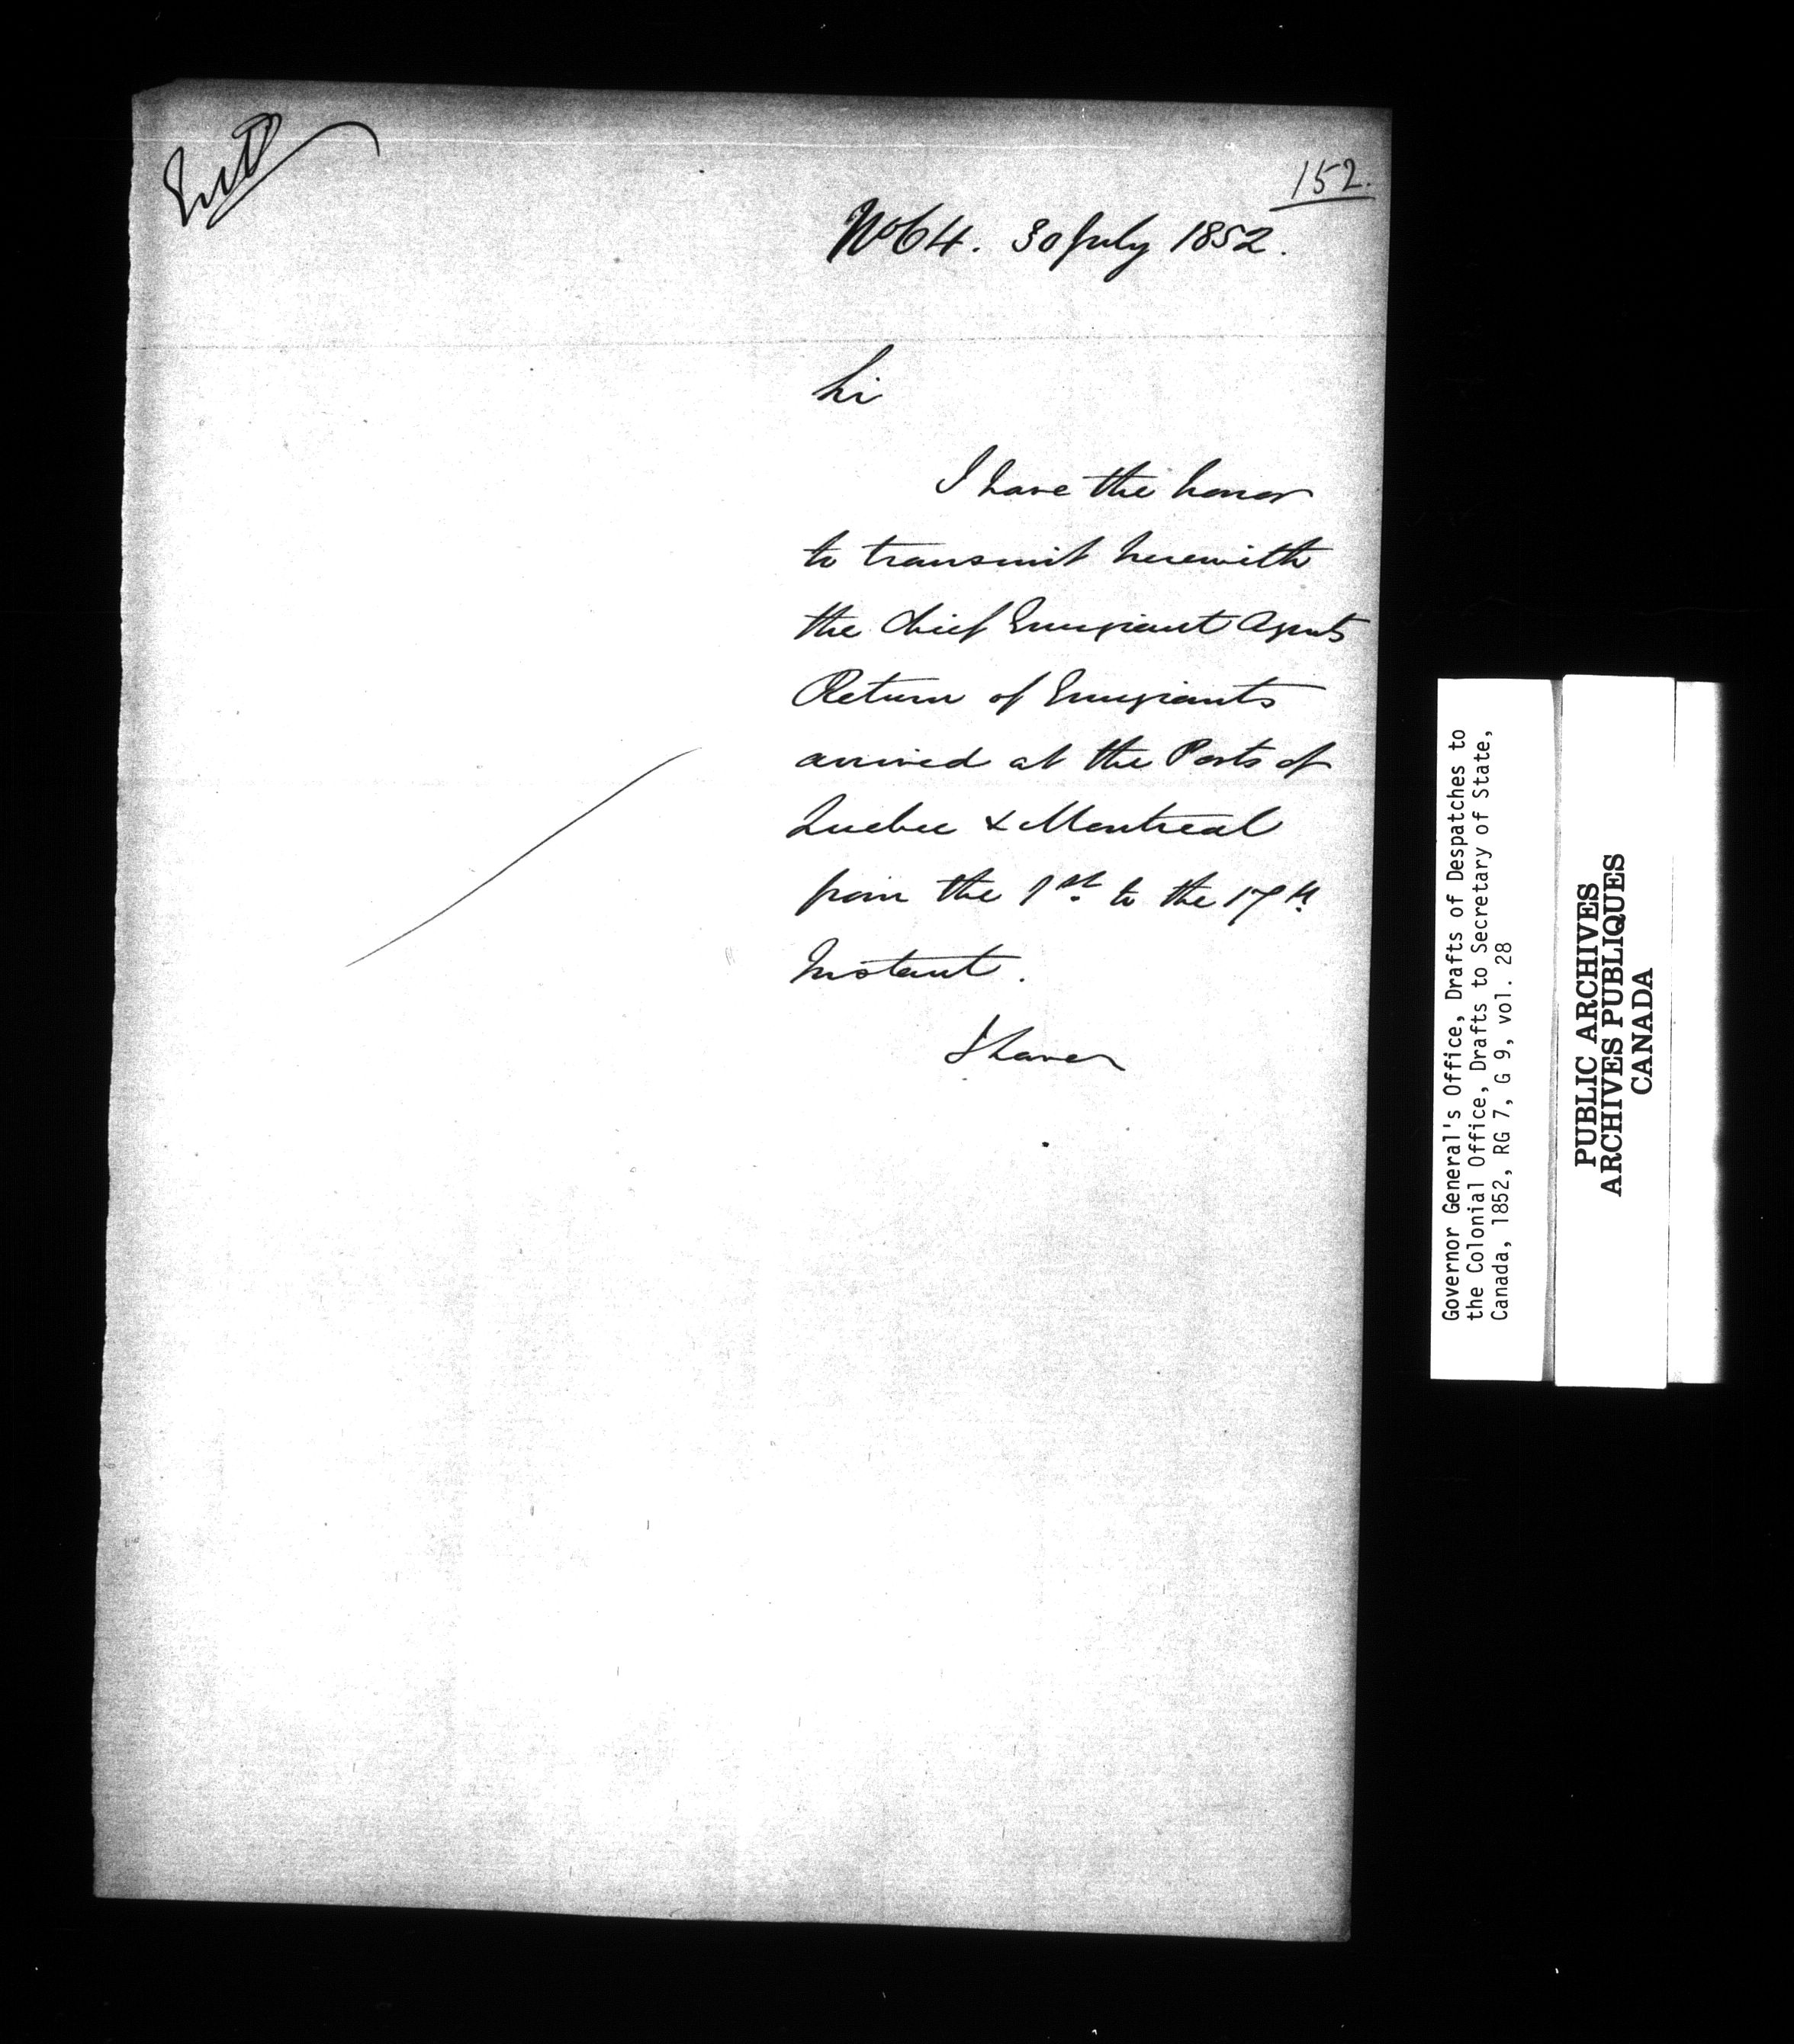 152.
No 64. 30 July 1852.
Sir
I have the honor
to transmit herewith
the Chief Emigrant Agents
Return of Emigrants
arrived at the Ports of
Quebec & Montreal
from the 1st. to the 17th.
Instant.
I have
Governor General's Office, Drafts of Despatches to
the Colonial Office, Drafts to Secretary of State,
Canada, 1852, RG 7, G 9, vol. 28
PUBLIC ARCHIVES
ARCHIVES PUBLIQUES
CANADA